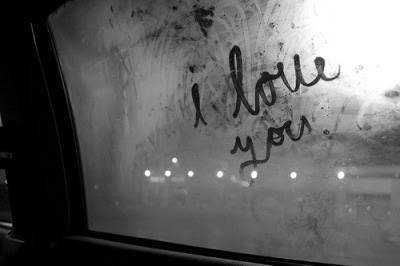 I love
you.